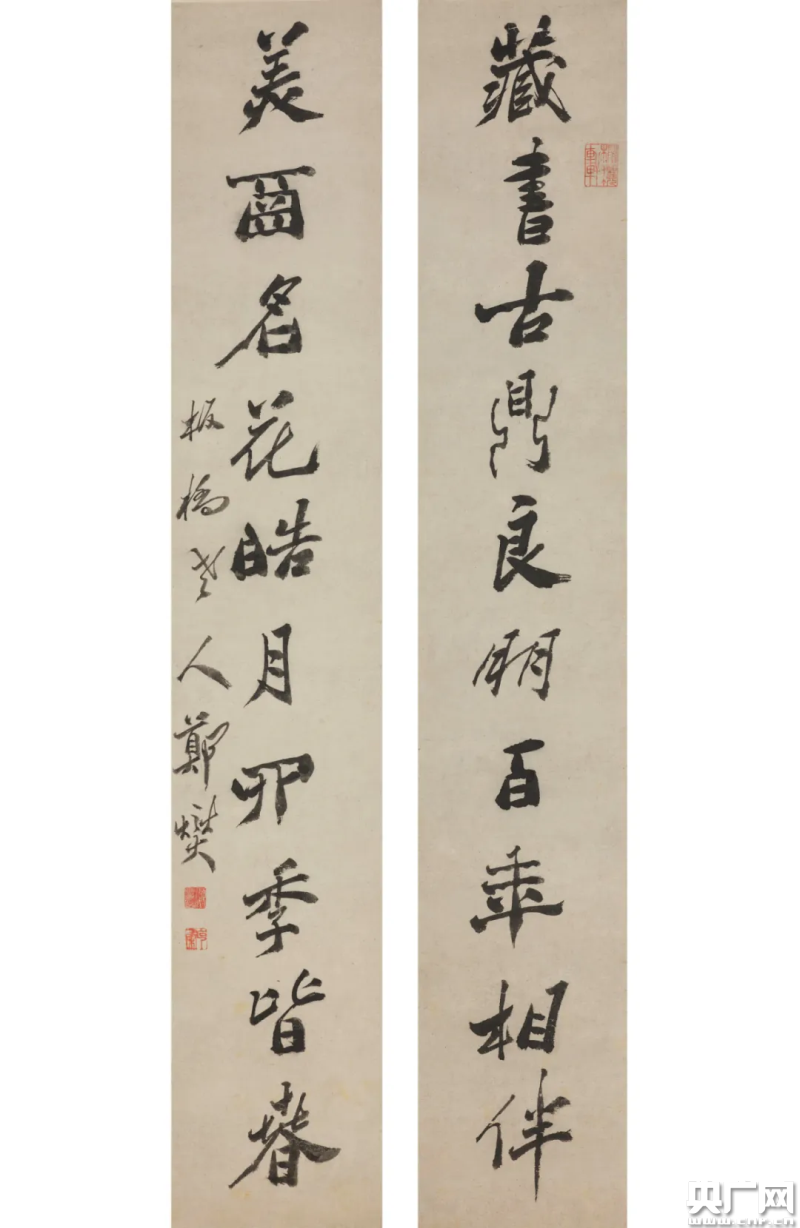 藏書古鼎良朋百年相伴
美酒名花皓月四季皆春
板橋老人鄭燮
央广网
www.cnr.cn